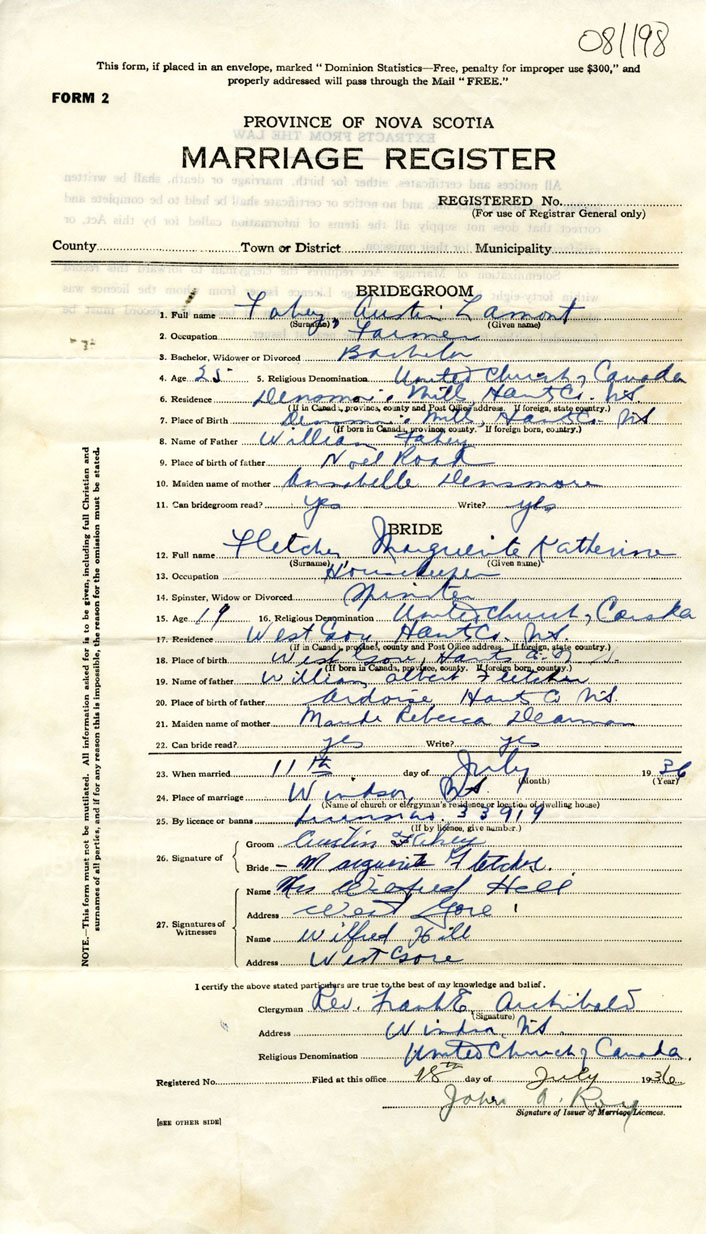 081198
This form, if placed in an envelope, marked "Dominion Statistics—Free, penalty for improper use $300," and
properly addressed will pass through the Mail "FREE."
FORM 2
PROVINCE OF NOVA SCOTIA
MARRIAGE REGISTER
REGISTERED No.
(For use of Registrar General only)
County Town or District Municipality
BRIDEGROOM
1. Full name Fahey, Austin Lamont
(Surname) (Given name)
2. Occupation Farmer
3. Bachelor, Widower or Divorced Bachelor
4. Age 25 5. Religious Denomination United Church of Canada
6. Residence Mills, Hants Co. NS
(If in Canada, province, county and Post Office address. If foreign, state country.)
7. Place of Birth Mills, Hants Co. NS
(If born in Canada, province, county. If foreign born, country.)
8. Name of Father William Fahey
9. Place of birth of father Noel Road
10. Maiden name of mother Annabelle Densmore
11. Can bridegroom read? yes Write? yes
BRIDE
12. Full name Fletcher Marguerite Katherine
(Surname) (Given name)
13. Occupation Housekeeper
14. Spinster, Widow or Divorced Spinster
15. Age 19 16. Religious Denomination United Church of Canada
17. Residence West Gore Hants Co. NS
(If in Canada, province, county and Post Office address. If foreign, state country.)
18. Place of birth West Gore, Hants Co. N.S.
(If born in Canada, province, county. If foreign born, country.)
19. Name of father William Albert Fletcher
20. Place of birth of father Ardoise Hants Co NS.
21. Maiden name of mother Maude Rebecca
22. Can bride read? yes Write? yes
23. When married 11th day of July 1936
(Month) (Year)
24. Place of marriage Windsor, NS
(Name of church or clergyman's residence or location of dwelling house)
25. By licence or banns License no. 33919
(If by licence, give number.)
26. Signature of
Groom Austin Fahey
Bride - Marguerite Fletcher.
27. Signatures of
Witnesses
Name Mrs Wilfred Hill
Address West Gore
Name Wilfred Hill
Address West Gore
I certify the above stated particulars are true to the best of my knowledge and belief.
Clergyman Rev. Frank E. Archibald
(Signature)
Address Windsor, NS.
Religious Denomination United Church of Canada.
Registered No. Filed at this office 18th day of July 1936
John A. Roy
Signature of Issuer of Marriage Licences.
[SEE OTHER SIDE]
NOTE.—This form must not be mutilated. All information asked for is to be given, including full Christian and
surnames of all parties, and if for any reason this is impossible, the reason for the omission must be stated.